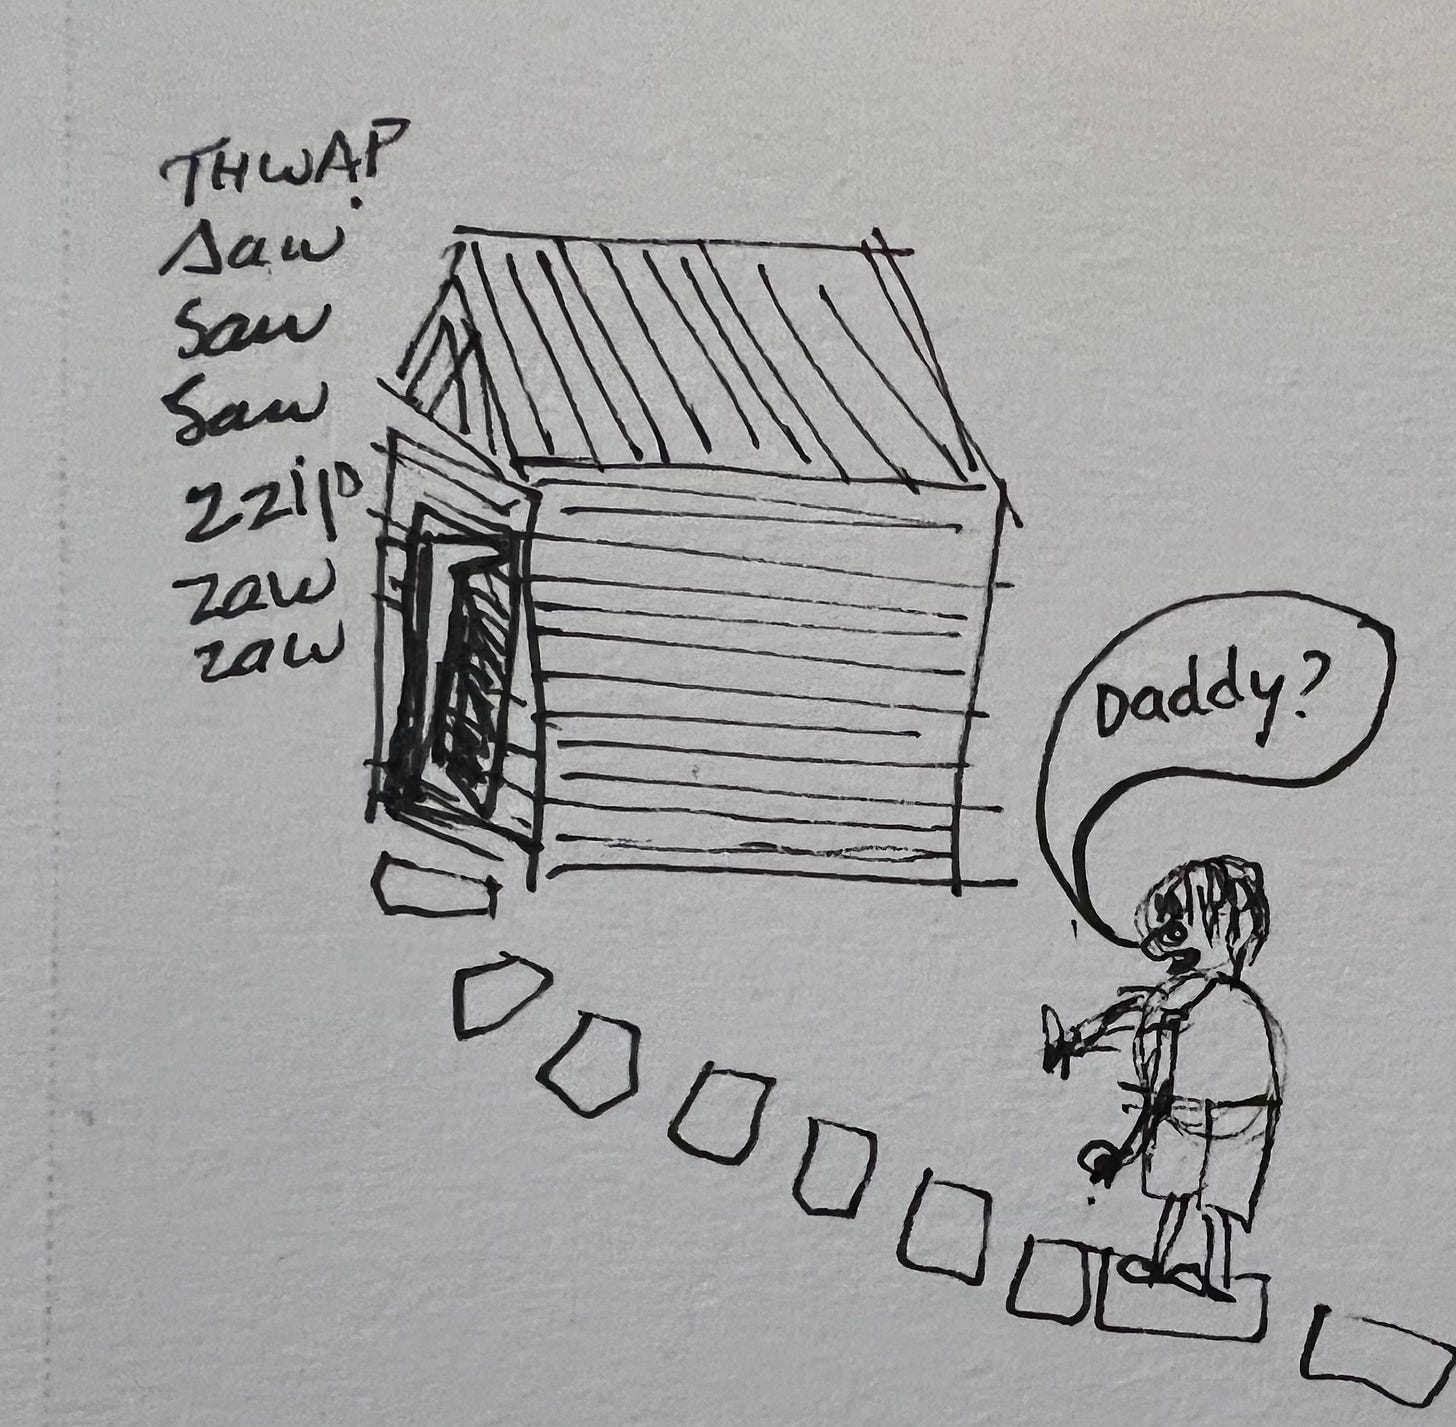 THWAP
Saw
Saw
Saw
zzip
zaw
zaw
Daddy?